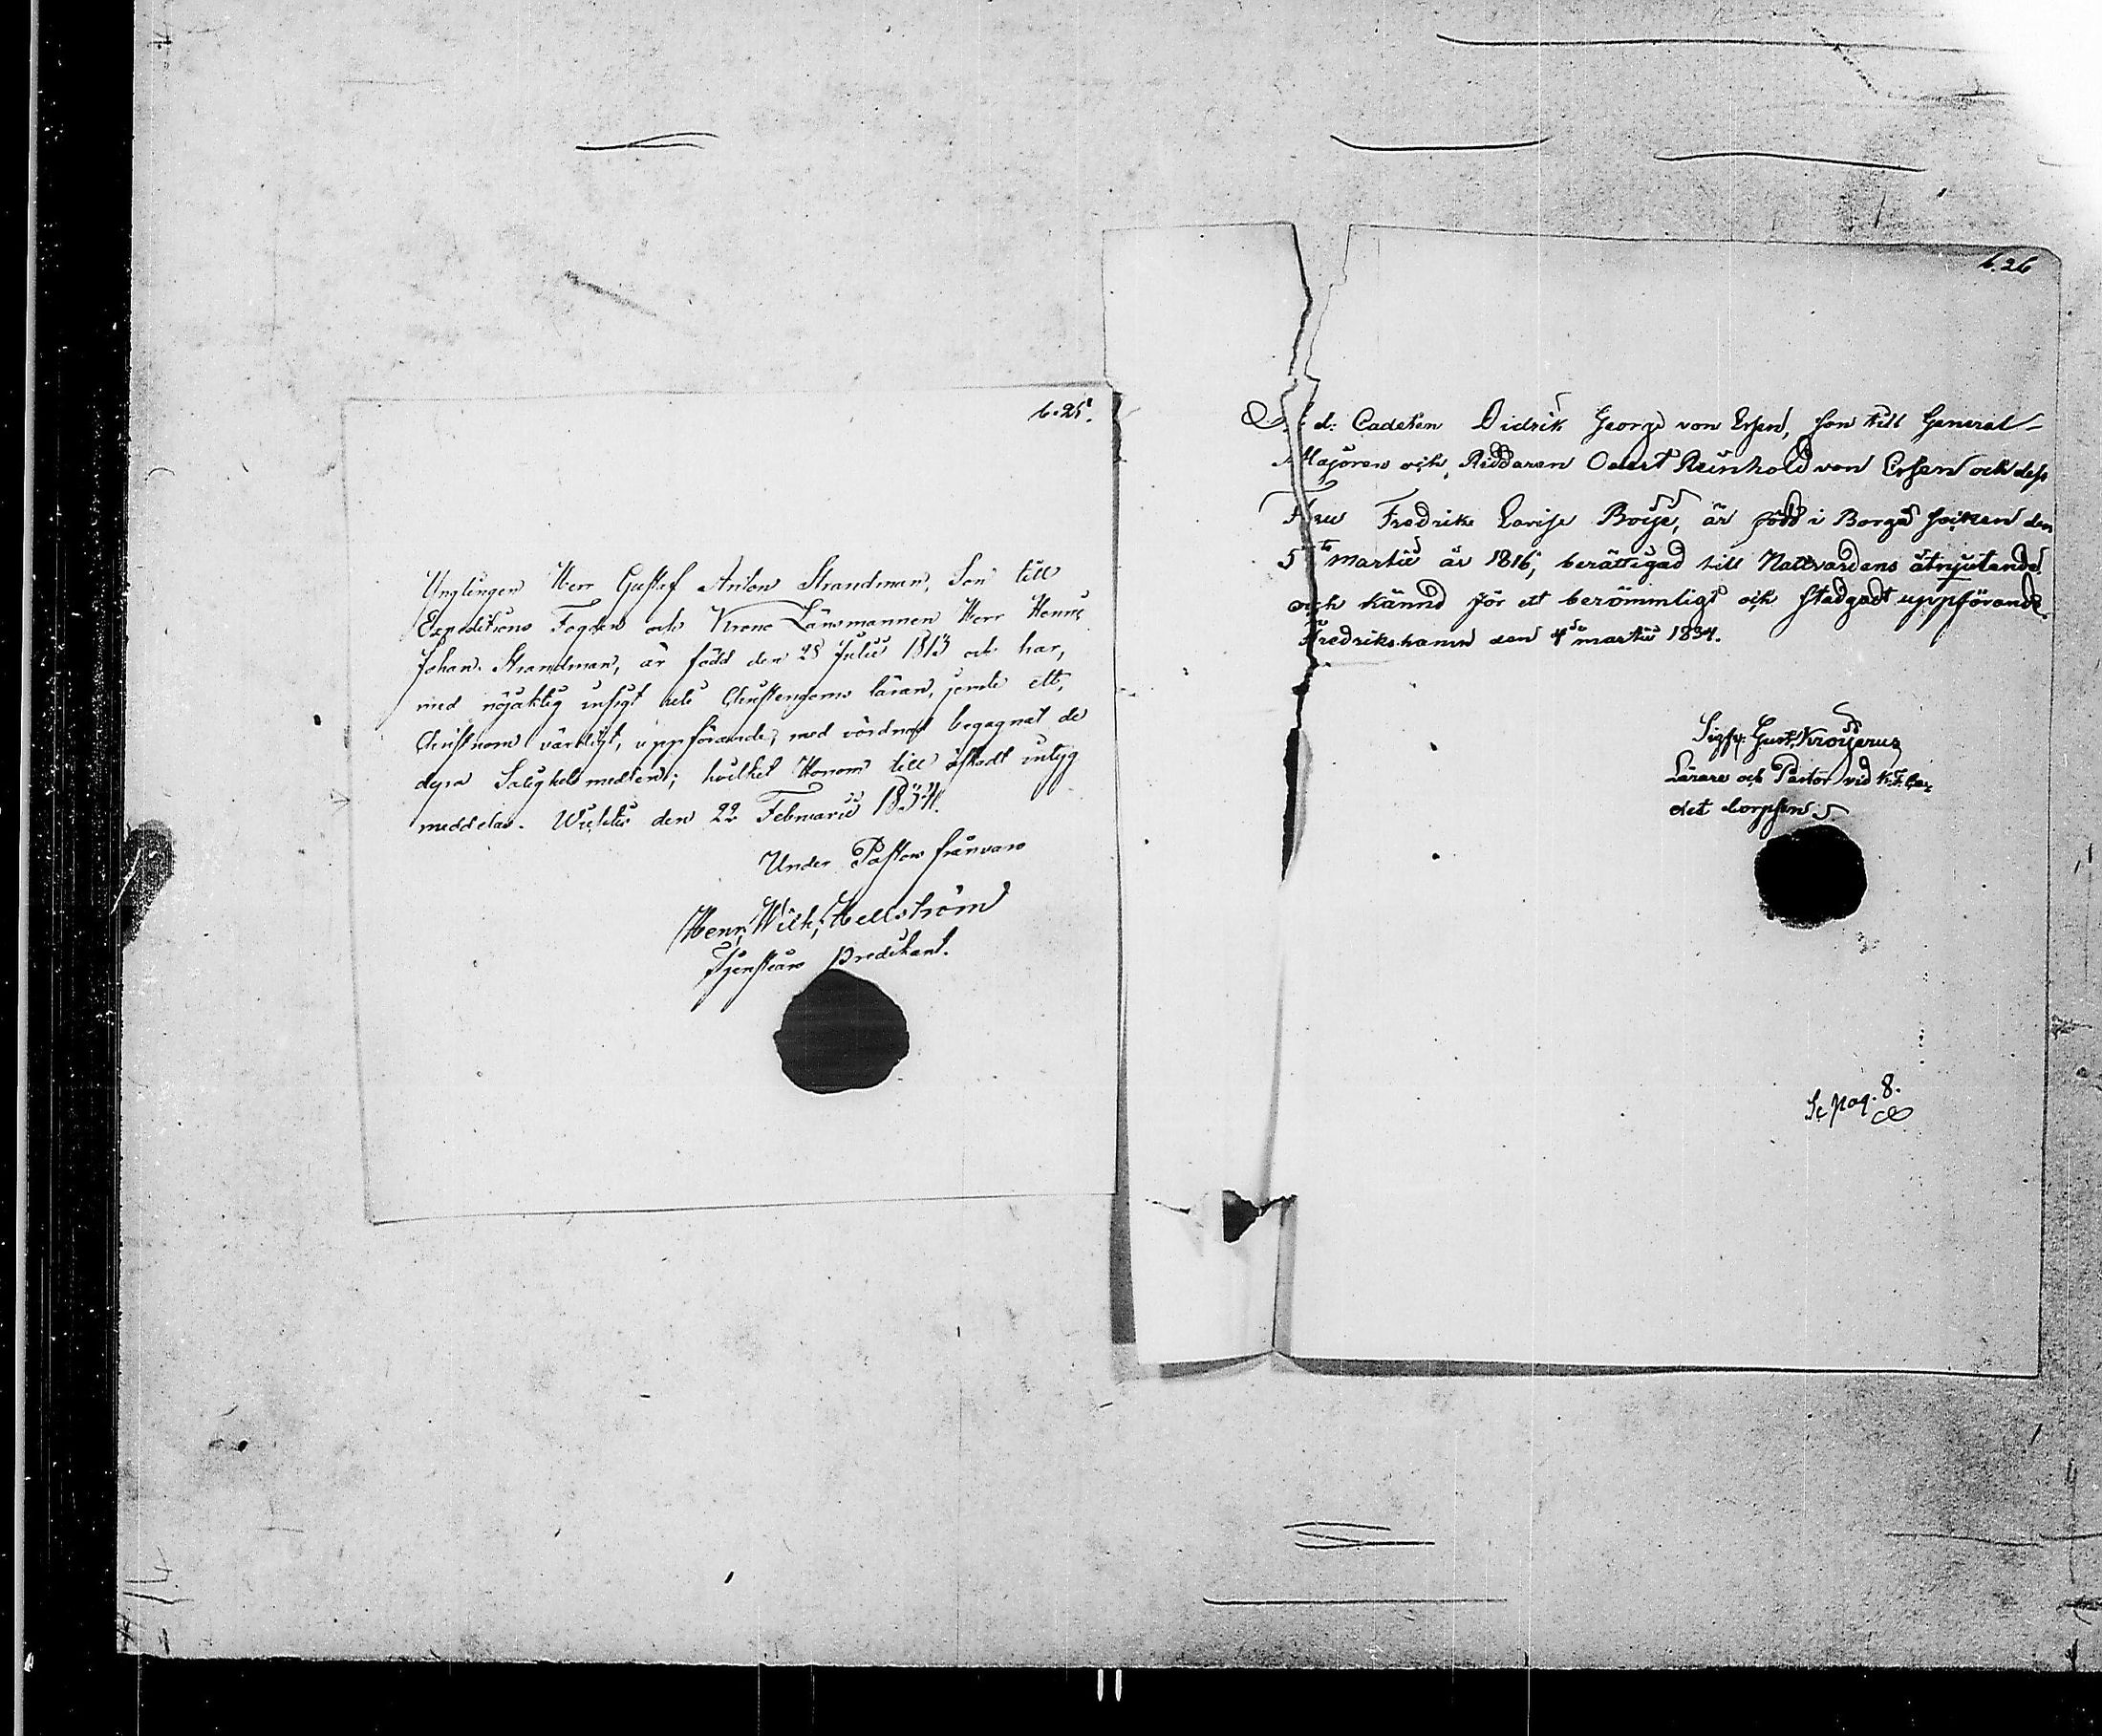 b. 25.
Unglingen Herr Gustaf Anton Strandman, Son till
Expeditions Fogden och Krono Länsmannen Herr Henric
Johan Strandman, är född den 28 Julii 1813 och har,
med nöjaktig insigt uti Christendoms läran, jemte ett,
Christnom värdigt, uppförande, med vördnad begagnat de
dyra Salighets medlen; hvilket Honom till äskadt intyg
meddelas. Wichtis den 22 Februarii 1834.
Under Pastors frånvaro
Henr. Wilh. Hellström
Tjenstgör. Predikant.
b. 26
d: Cadeten Didrik Georg von Essen, son till General-
Majoren och Riddaren Odert Reinhold von Essen och dess
Fru Fredrika Lovisa Boije, är född i Borgå socken den
5te Martii år 1816, berättigad till Nattvardens åtnjutande
och kännd för ett berömmligt och stadgadt uppförande.
Fredrikshamn den 4de Martii 1834.
Sigfr. Gust. Kroijerus
Lärare och Pastor vid K. F. Ca-
det Corpsen
Se pag. 8.